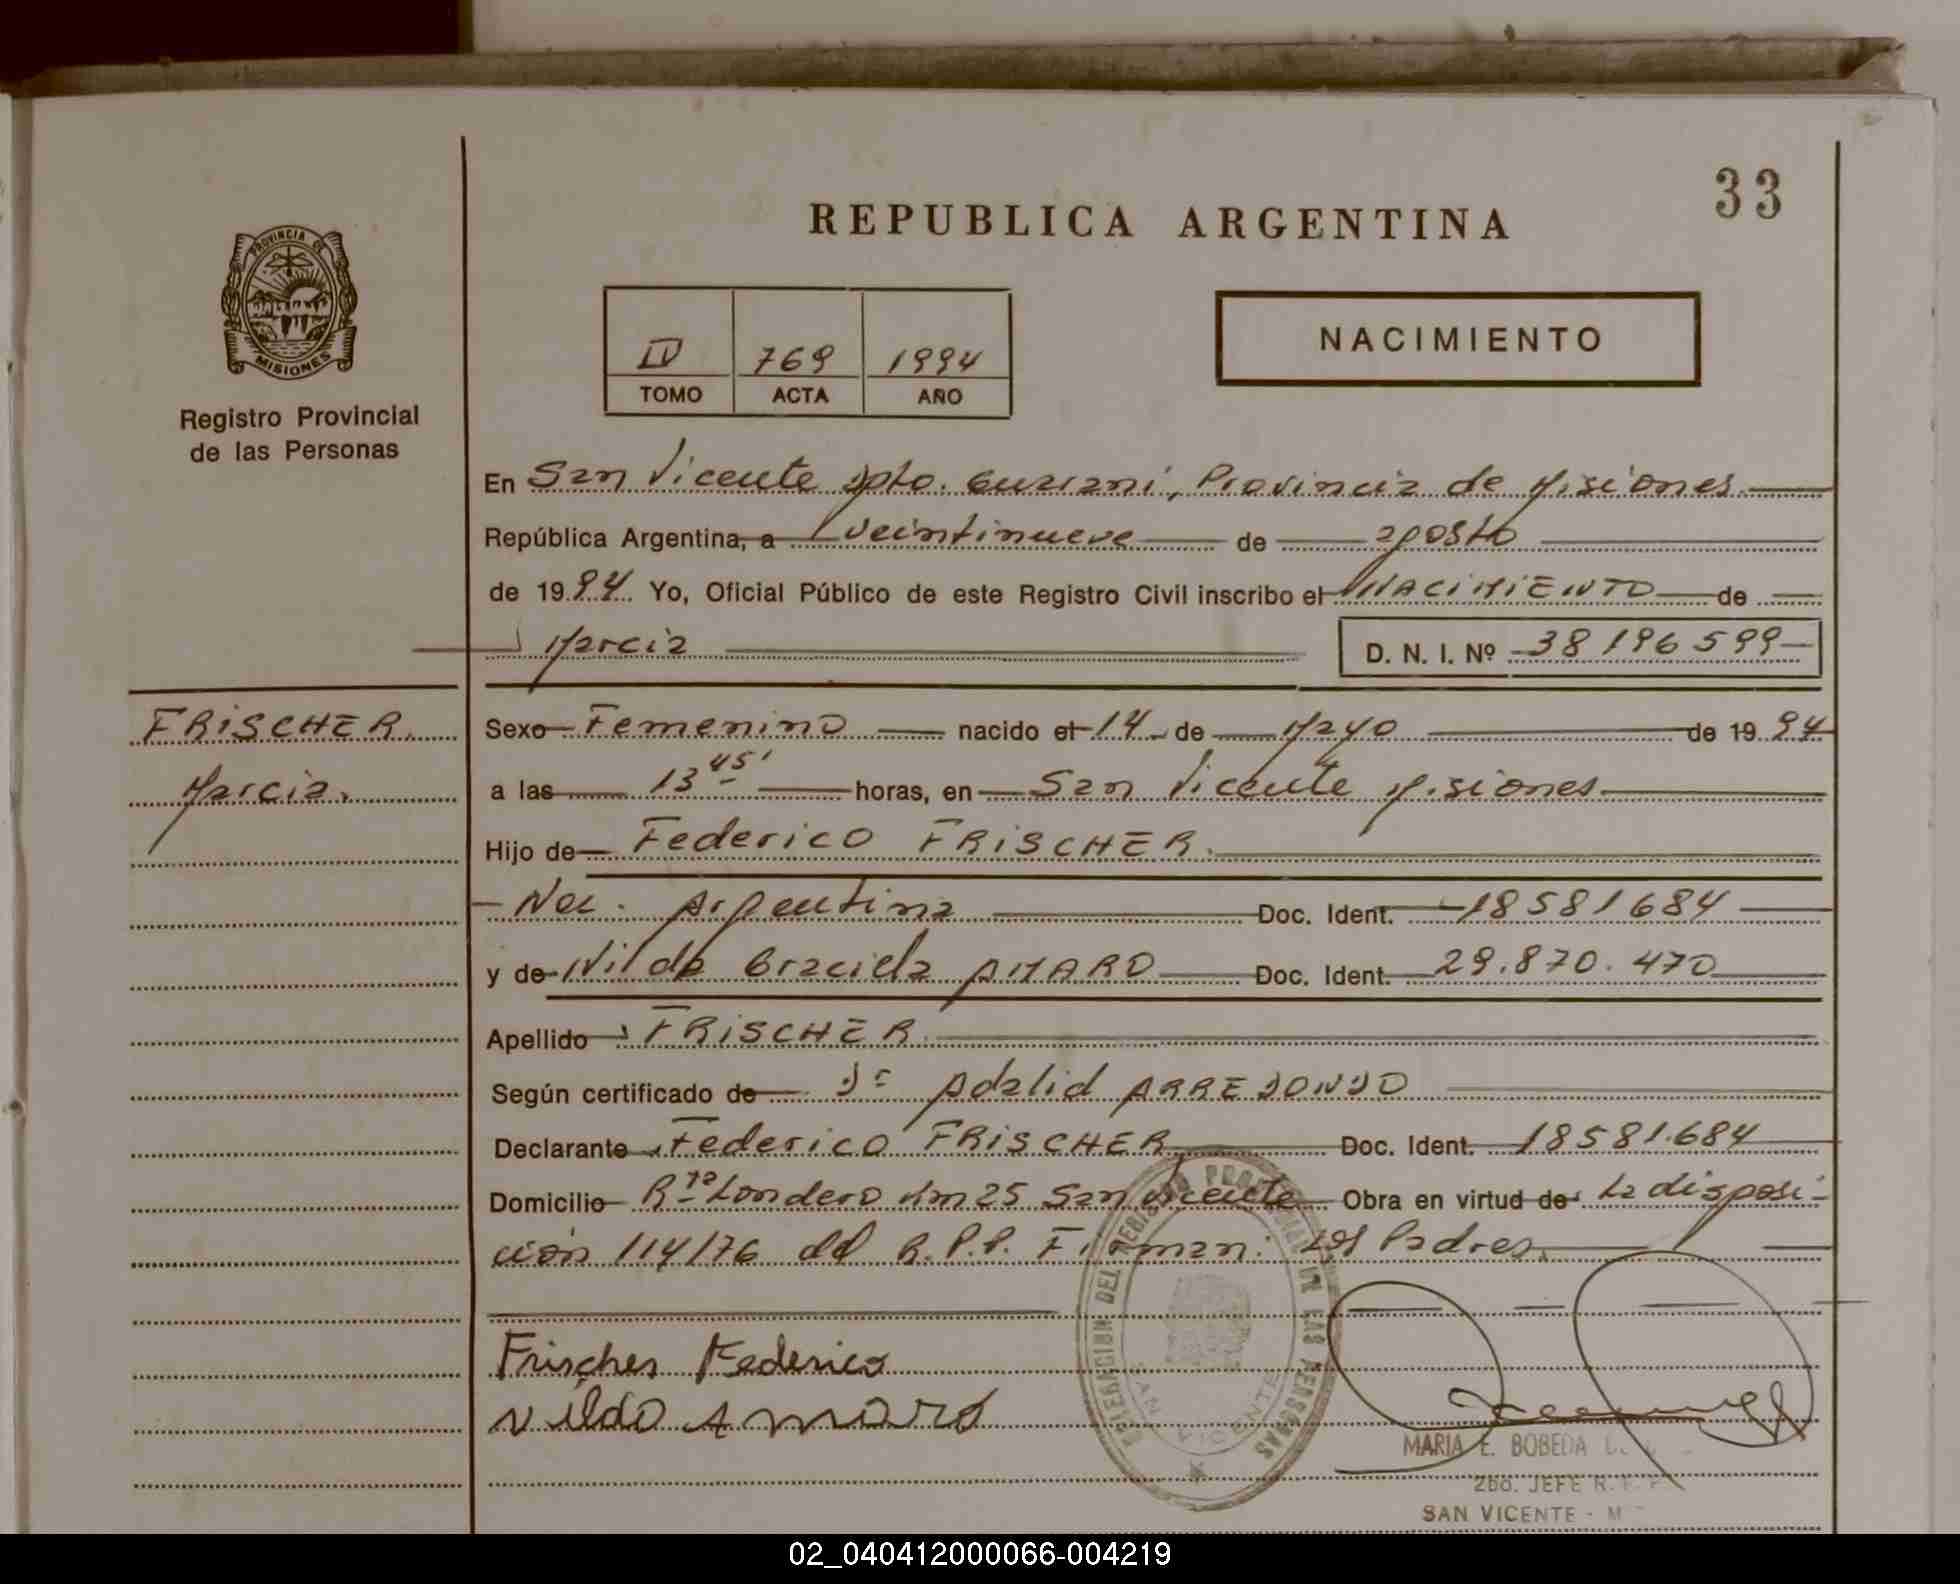 33
REPUBLICA ARGENTINA
PROVINCIA DE
MISIONES
Registro Provincial
de las Personas
NACIMIENTO
IV 769 1994
TOMO ACTA AÑO
En San Vicente Dpto. Guaraní, Provincia de Misiones
República Argentina, a veintinueve de agosto
de 1994 Yo, Oficial Público de este Registro Civil inscribo el NACIMIENTO de
Marcia D. N. I. Nº 38196599
FRISCHER.
Marcia.
Sexo Femenino nacido el 14 de Mayo de 1994
a las 13 45' horas, en San Vicente Misiones
Hijo de Federico FRISCHER.
Nac. Argentina Doc. Ident. 18581684
y de Nilda Graciela AMARO Doc. Ident. 29.870.470
Apellido: FRISCHER.
Según certificado de Dr Adalid ARREDONDO
Declarante Federico FRISCHER Doc. Ident. 18581.684
Domicilio Rta Londero Km 25 San Vicente Obra en virtud de: La disposi-
ción 114/76 del R.P.P. Firman: Los Padres.
Frischer Federico
Nilda Amaro
DELEGACION DEL REGISTRO PROVINCIAL DE LAS PERSONAS
SAN VICENTE
MARIA E. BOBEDA
2do. JEFE R.
SAN VICENTE - M
02_040412000066-004219